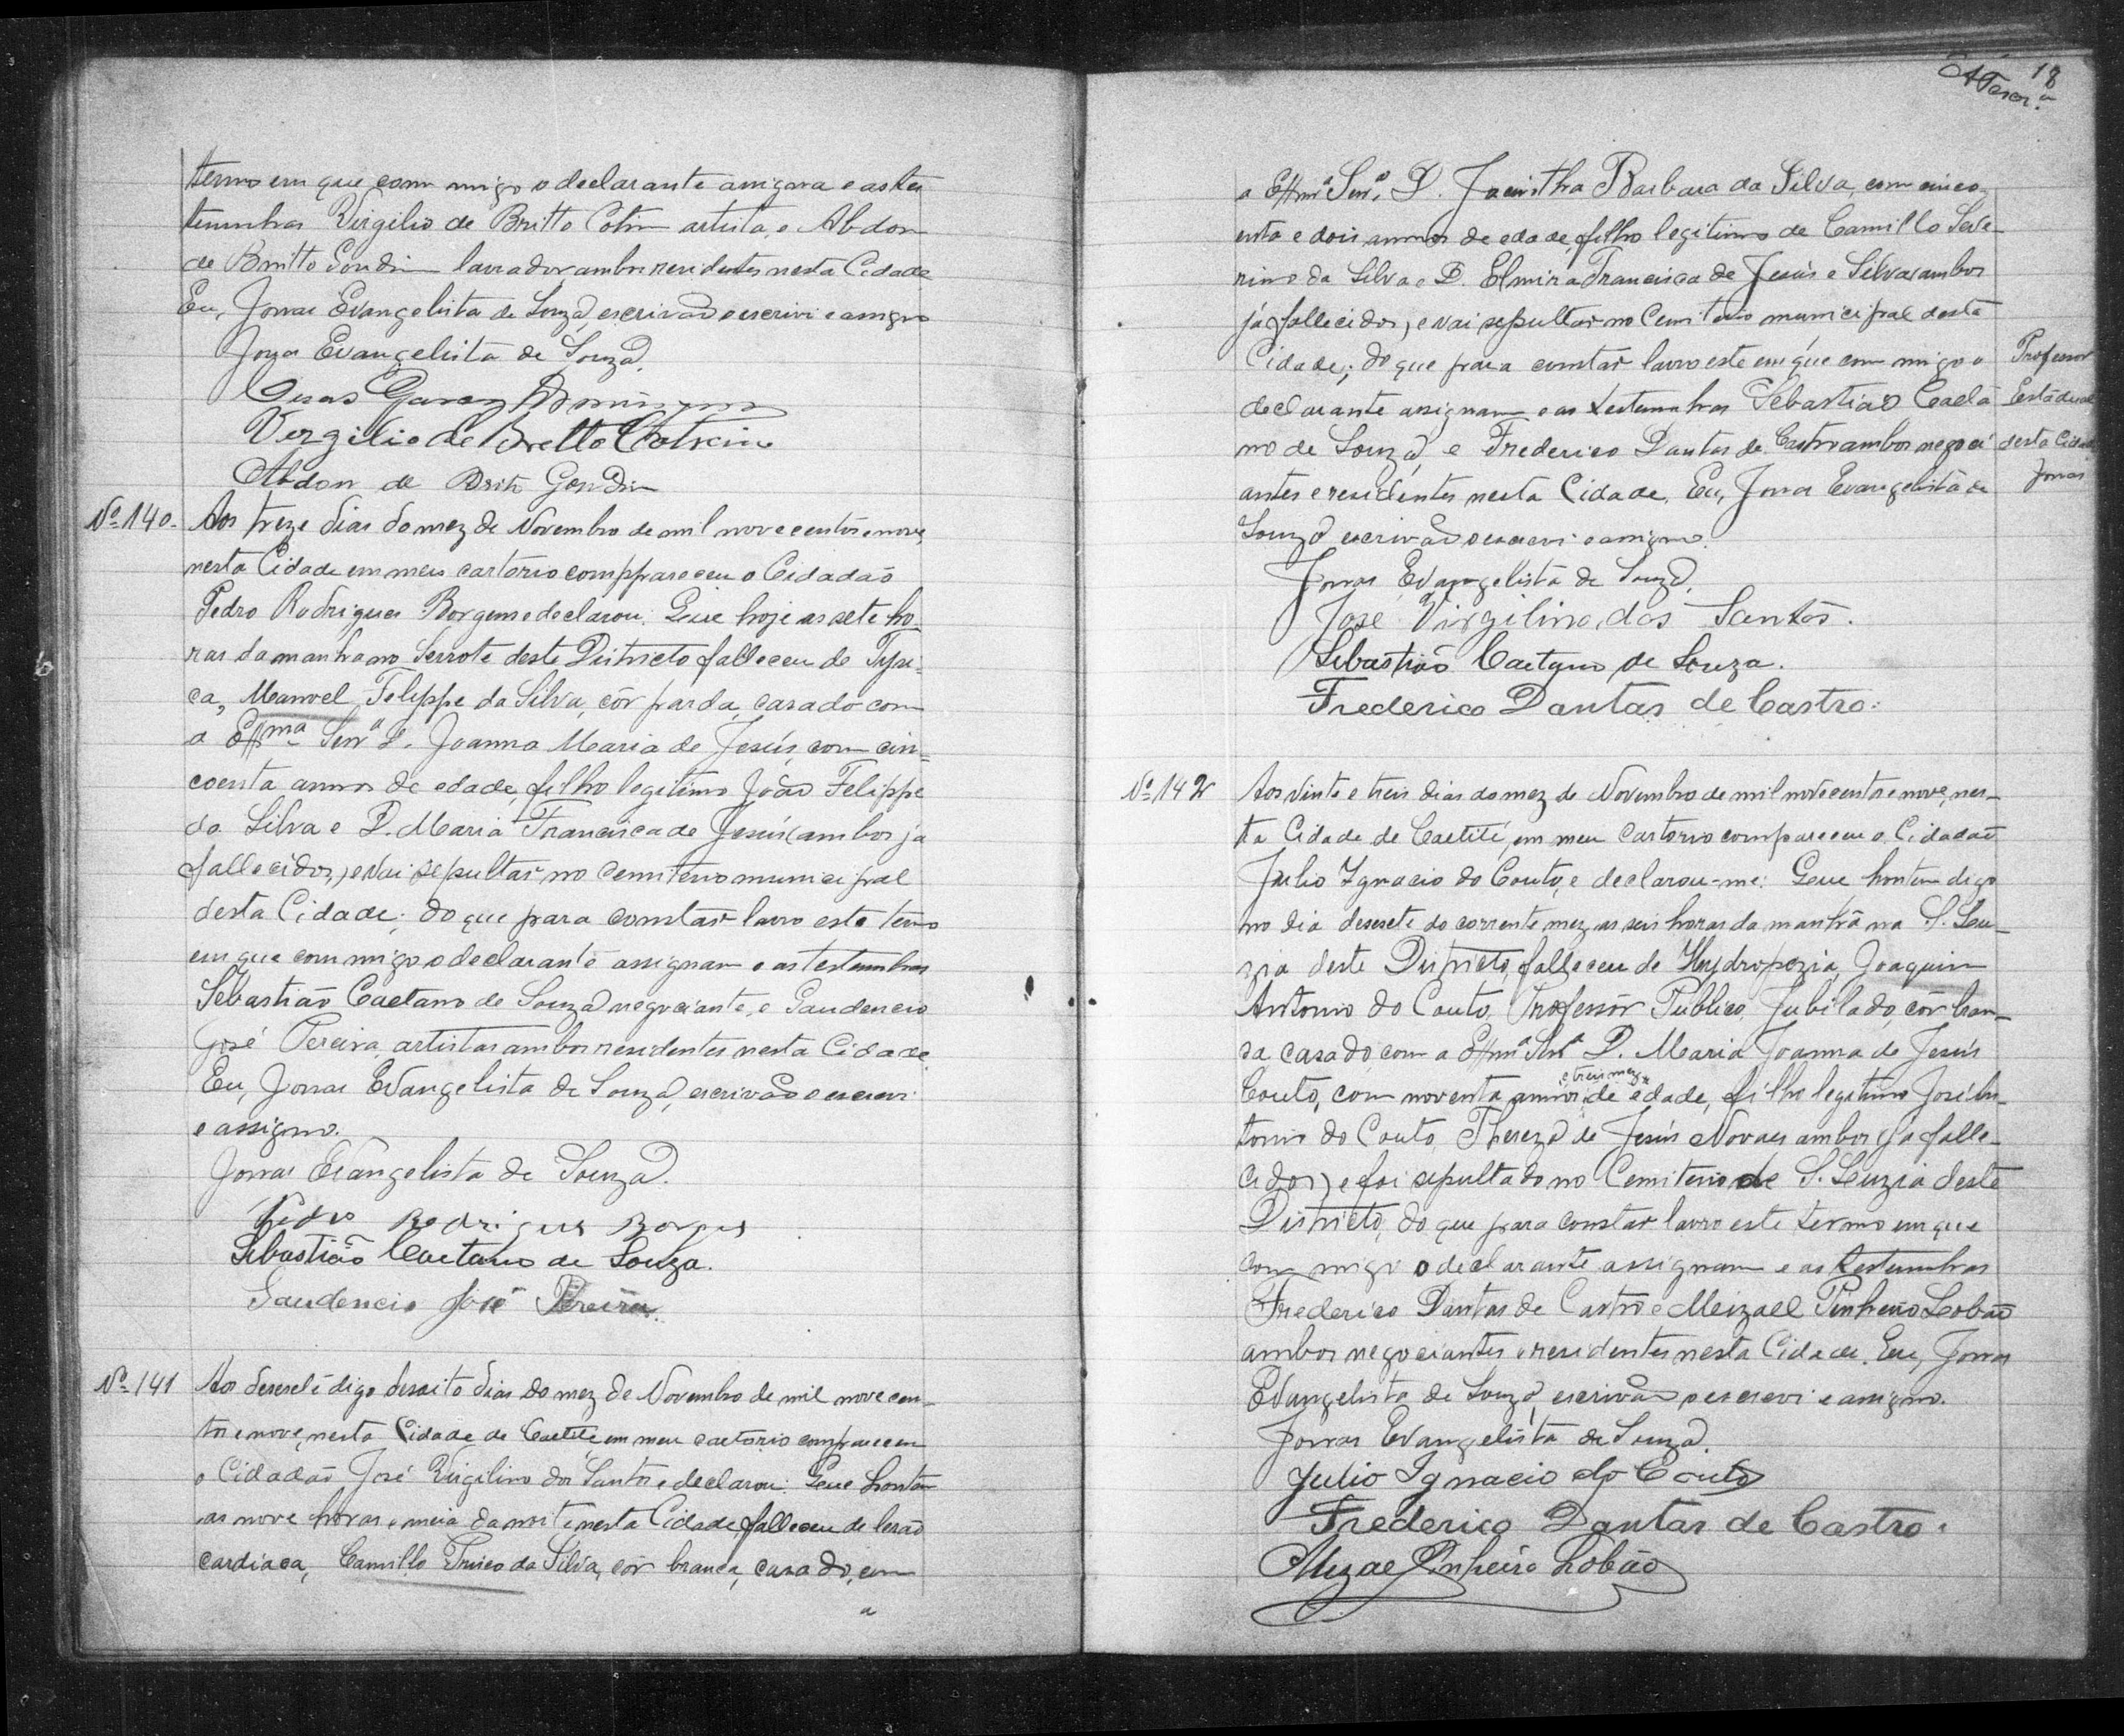 termo em que com migo o declarante assigna e as tes
temunhas Virgilio de Britto Cotrim artista, e Abdon
de Britto Gondim lavrador, ambos residentes nesta Cidade
Eu, Jonas Evangelista de Souza, escrivão o escrivi e assigno
Jonas Evangelista de Souza.
Vergilio de Bretto Cotrein
Abdon de Brito Gondim
Nº 140. Aos treze dias do mez de Novembro de mil nove centos e nove,
nesta Cidade em meu cartorio comppareceu o Cidadão
Pedro Rodrigues Borges me declarou: Que hoje as sete ho-
ras da manhã no Serrote deste Districto falleceu de Tysi-
ca, Manoel Felippe da Silva, côr parda, casado com
a Exma Senrª D. Joanna Maria de Jesús, com cin-
coenta annos de edade, filho legitimo João Felippe
da Silva e D. Maria Francisca de Jesús (ambos ja
fallecidos,) e vai sepultar no cemiterio municipal
desta Cidade; do que para constar lavro este termo
em que com migo o declarante assignam e as testemunhas
Sebastião Caetano de Souza negociante, e Gaudencio
José Pereira, artistas ambos residentes nesta Cidade.
Eu, Jonas Evangelista de Souza, escrivão o escrevi
e assigno.
Jonas Evangelista de Souza.
Pedro Rodrigues Borges
Sebastião Caetano de Souza.
Gaudencio José Pereira.
Nº 141 Aos desesete digo desoito dias do mez de Novembro de mil nove cen-
tos e nove, nesta Cidade de Caetité, em meu cartorio compareceu
o Cidadão José Virgilino dos Santos e declarou: Que hontem
as nove horas e meia da noite, nesta Cidade falleceu de lesão
cardiaca, Camillo da Silva, côr branca, casado, com
a
18
a Exmª Senrª D. Jacintha Barbara da Silva, com cinco
enta e dois annos de edade, filho legitimo de Camillo Seve-
rino da Silva e D. Elmira Francisca de Jesús e Silva (ambos
já fallecidos,) e vai sepultar no Cemiterio municipal desta
Cidade; do que para constar lavro este em que com migo o
declarante assignam e as testemunhas Sebastião Caeta
no de Souza, e Frederico Dantas de Castro ambos negoci
antes e residentes nesta Cidade. Eu, Jonas Evangelista de
Souza escrivão o escrevi e assigno.
Professor
Estadual
desta Cidade
Jonas
Jonas Evangelista de Souza.
José Virgilino dos Santos.
Sebastião Caetano de Souza.
Frederico Dantas de Castro.
Nº 142 Aos vinte e treis dias do mez de Novembro de mil nove centos e nove, nes-
ta Cidade de Caetité, em meu Cartorio compareceu o Cidadão
Julio Ignacio do Couto, e declarou-me: Que hontem digo
no dia desesete do corrente mez, as seis horas da manhã na S. Lu-
zia deste Districto, falleceu de Hydropezia, Joaquim
Antonio do Couto, Professôr Publico, Jubilado, côr bran-
ca casado, com a Exmª Snrª D. Maria Joanna de Jesús
e treis mezes
Couto, com noventa annos de edade, filho legitimo José An-
tonio do Couto, Thereza de Jesús Novaes ambos (ja falle-
cidos) e foi sepultado no Cemiterio de S. Luzia deste
Districto, do que para constar lavro este termo em que
com migo o declarante assignam e as testemunhas
Frederico Dantas de Castro e Meizael Pinheiro Lobão
ambos negociantes, e residentes nesta Cidade. Eu, Jonas
Evangelista de Souza, escrivão o escrevi e assigno.
Jonas Evangelista de Souza.
Julio Ignacio do Couto
Frederico Dantas de Castro.
Mizael Pinheiro Lobão